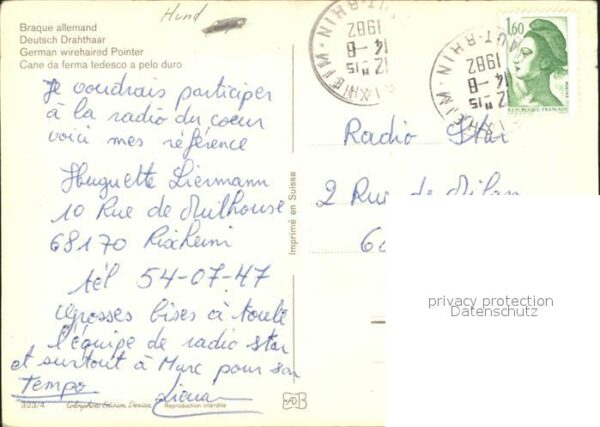 Hund
Braque allemand
Deutsch Drahthaar
German wirehaired Pointer
Cane da ferma tedesco a pelo duro
Je voudrais participer
à la radio du coeur
voici mes référence
Huguette Liermann
10 Rue de Mulhouse
68170 Rixheim
tél 54-07-47
Grosses bises à toute
l'équipe de radio star
et surtout à Marc pour son
Tempo
323/4
Reproduction interdite
Imprimé en Suisse
RIXHEIM
12 H 15
14-8
1982
HAUT-RHIN
RIXHEIM
12 H 15
14-8
1982
HAUT-RHIN
1,60
REPUBLIQUE FRANÇAISE
Radio Star
2 Rue de Milan
privacy protection
Datenschutz